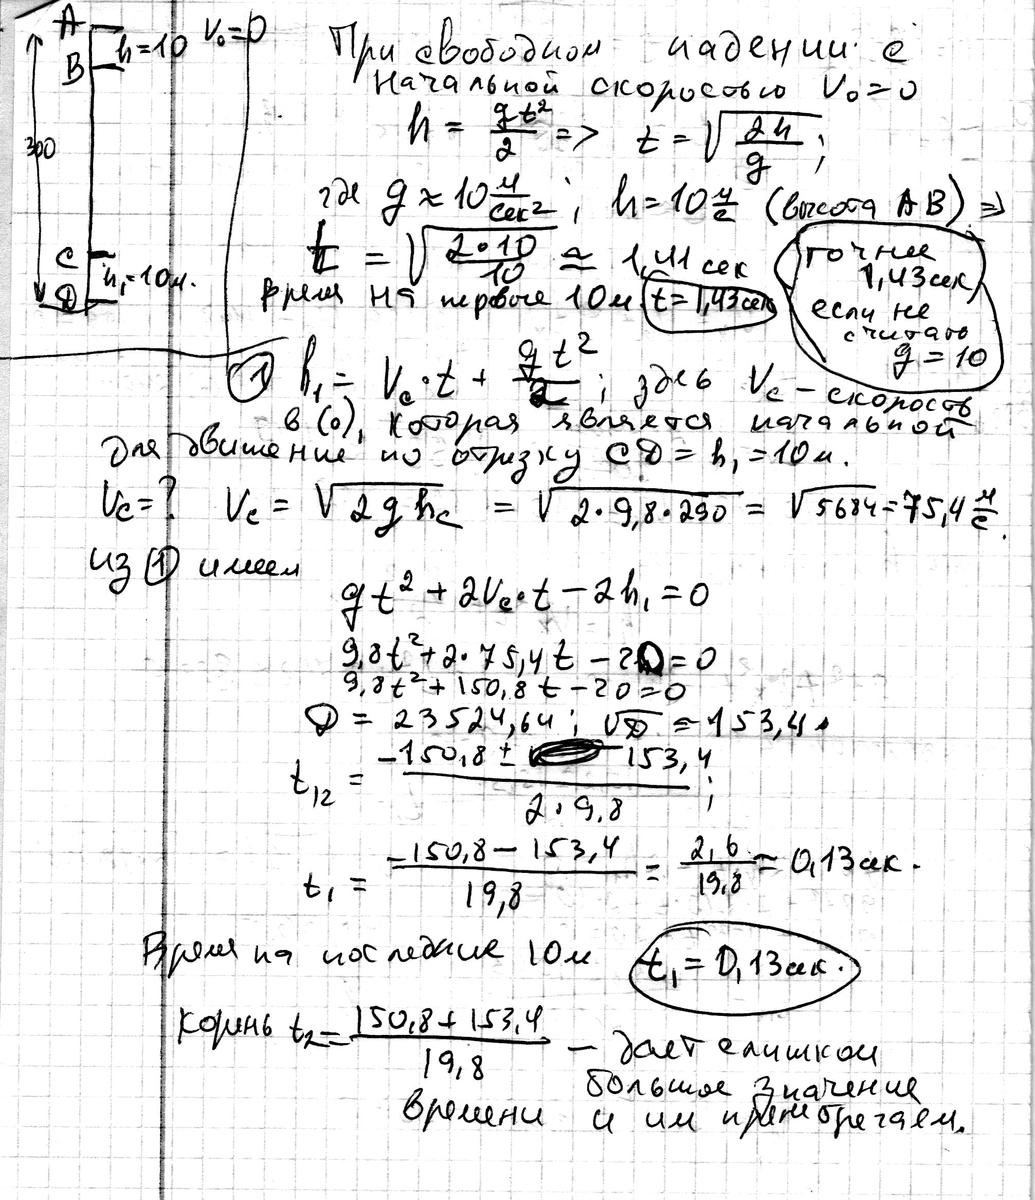 A
B
h=10
V₀=0
300
C
h₁=10м.
D
При свободном падении с
начальной скоростью V₀=0
h = gt²/2 => t = √(2h/g);
где g≈10 м/сек²; h=10 м/с (высота AB) =>
t = √(2·10/10) ≃ 1,41 сек
время на первые 10м t=1,43сек
точнее
1,43сек
если не
считать
g=10
① h₁ = Vc·t + gt²/2; здесь Vc – скорость
в (c), которая является начальной
для движение по отрезку CD = h₁ = 10м.
Vc=? Vc = √(2ghc) = √(2·9,8·290) = √5684 = 75,4 м/с.
из ① имеем
gt² + 2Vc·t − 2h₁ = 0
9,8t²+2·75,4t − 20=0
9,8t²+150,8t − 20=0
D = 23524,64; √D ≈ 153,4.
t₁₂ = (−150,8 ± 153,4)/(2·9,8);
t₁ = (−150,8 − 153,4)/19,8 = 2,6/19,8 ≈ 0,13сек.
Время на последние 10м t₁ = 0,13сек.
коринь t₂ = (150,8+153,4)/19,8 – дает слишком
большое значение
времени и им пренебрегаем.